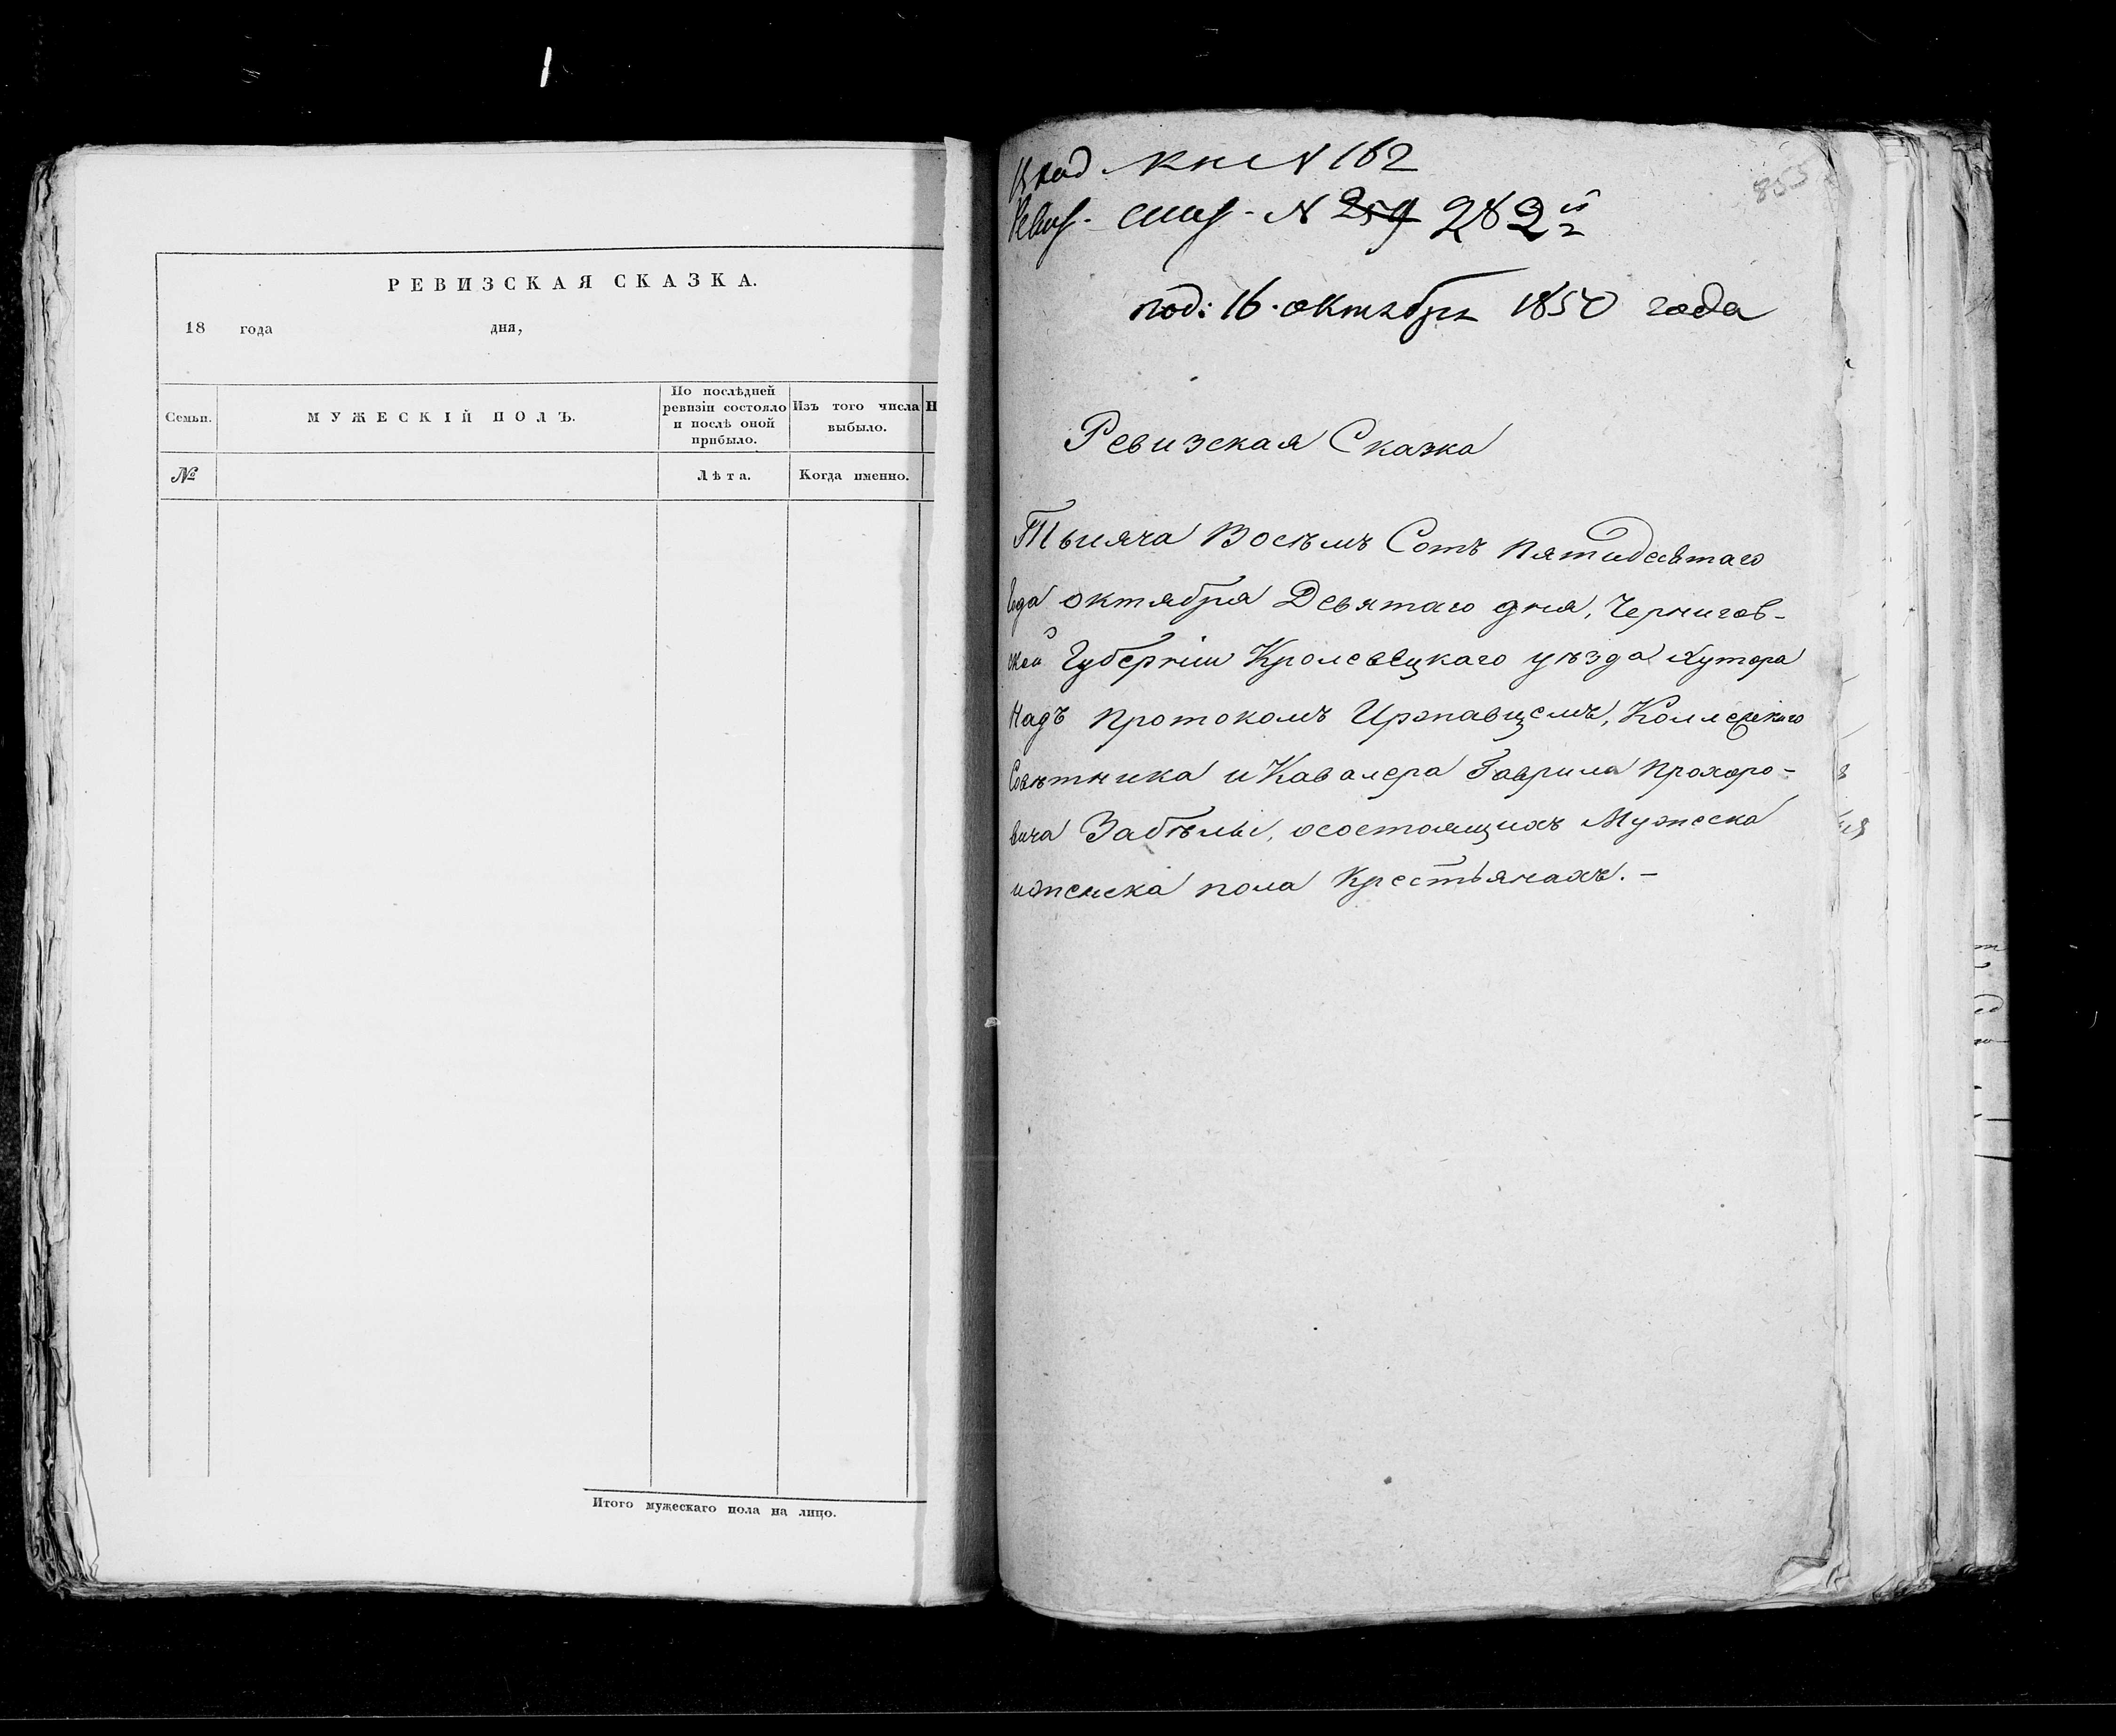 РЕВИЗСКАЯ СКАЗКА.
18 года дня,
Семьи. МУЖЕСКІЙ ПОЛЪ. По послѣдней ревизіи состояло и послѣ оной прибыло. Изъ того числа выбыло. Н
№ Лѣта. Когда именно.
Итого мужескаго пола на лицо.
855
кн N 162
N 259 282й
под: 16. октября 1850 года
Ревизская Сказка
Тысяча Восѣмъ Сотъ Пятидесятаго
года октября Девятаго дня, Чернигов-
ской Губерніи Кролевѣцкаго уѣзда Хутора
Надъ Протокомъ Иржавцемъ, Коллежскаго
Совѣтника и Кавалера Гаврила Прохоро-
вича Забѣлы, осостоящихъ Мужеска
иженска пола Крестьянахъ. -